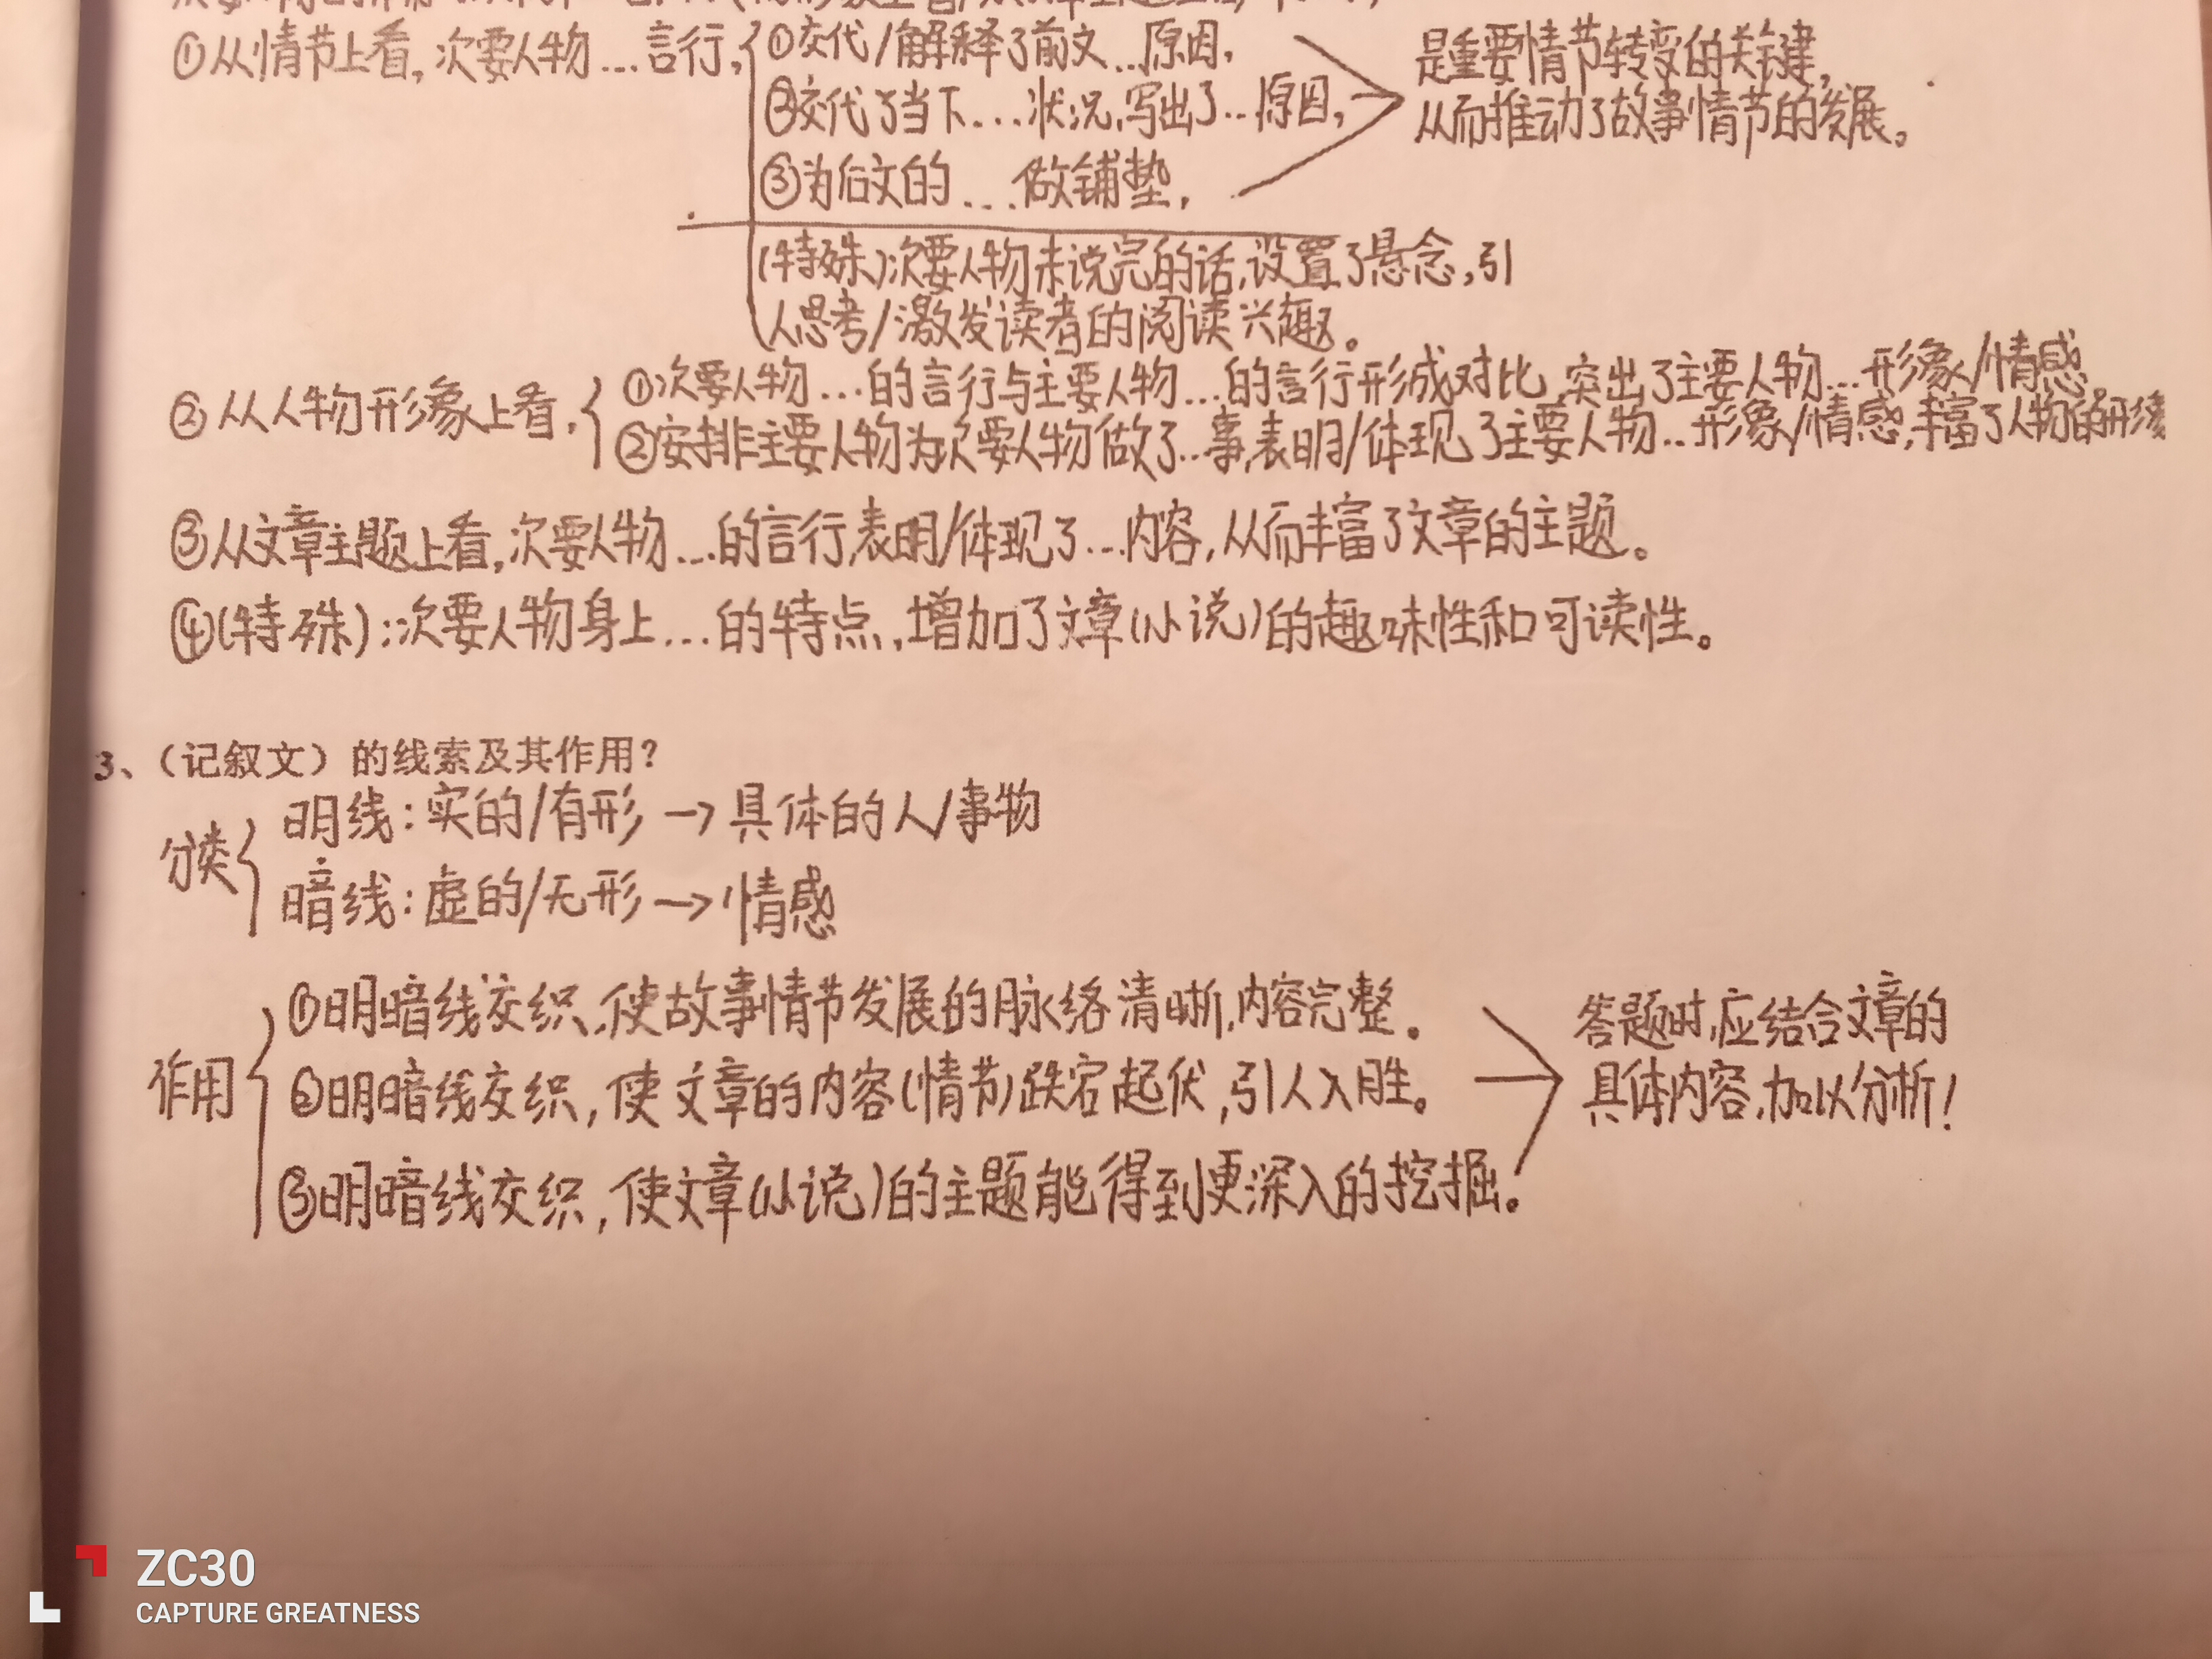 ①从情节上看,次要人物…言行,
①交代/解释了前文…原因,
②交代了当下…状况,写出了…原因,
③为后文的…做铺垫,
是重要情节转变的关键,
从而推动了故事情节的发展。
(特殊)次要人物未说完的话,设置了悬念,引
人思考/激发读者的阅读兴趣。
②从人物形象上看,
①次要人物…的言行与主要人物…的言行形成对比,突出了主要人物…形象/情感。
②安排主要人物为次要人物做了…事,表明/体现了主要人物…形象/情感,丰富了人物的形象
③从文章主题上看,次要人物…的言行,表明/体现了…内容,从而丰富了文章的主题。
④(特殊):次要人物身上…的特点,增加了文章(小说)的趣味性和可读性。
3、(记叙文)的线索及其作用?
分类
明线:实的/有形→具体的人/事物
暗线:虚的/无形→情感
作用
①明暗线交织,使故事情节发展的脉络清晰,内容完整。
②明暗线交织,使文章的内容(情节)跌宕起伏,引人入胜。
③明暗线交织,使文章(小说)的主题能得到更深入的挖掘。
答题时,应结合文章的
具体内容,加以分析!
ZC30
CAPTURE GREATNESS